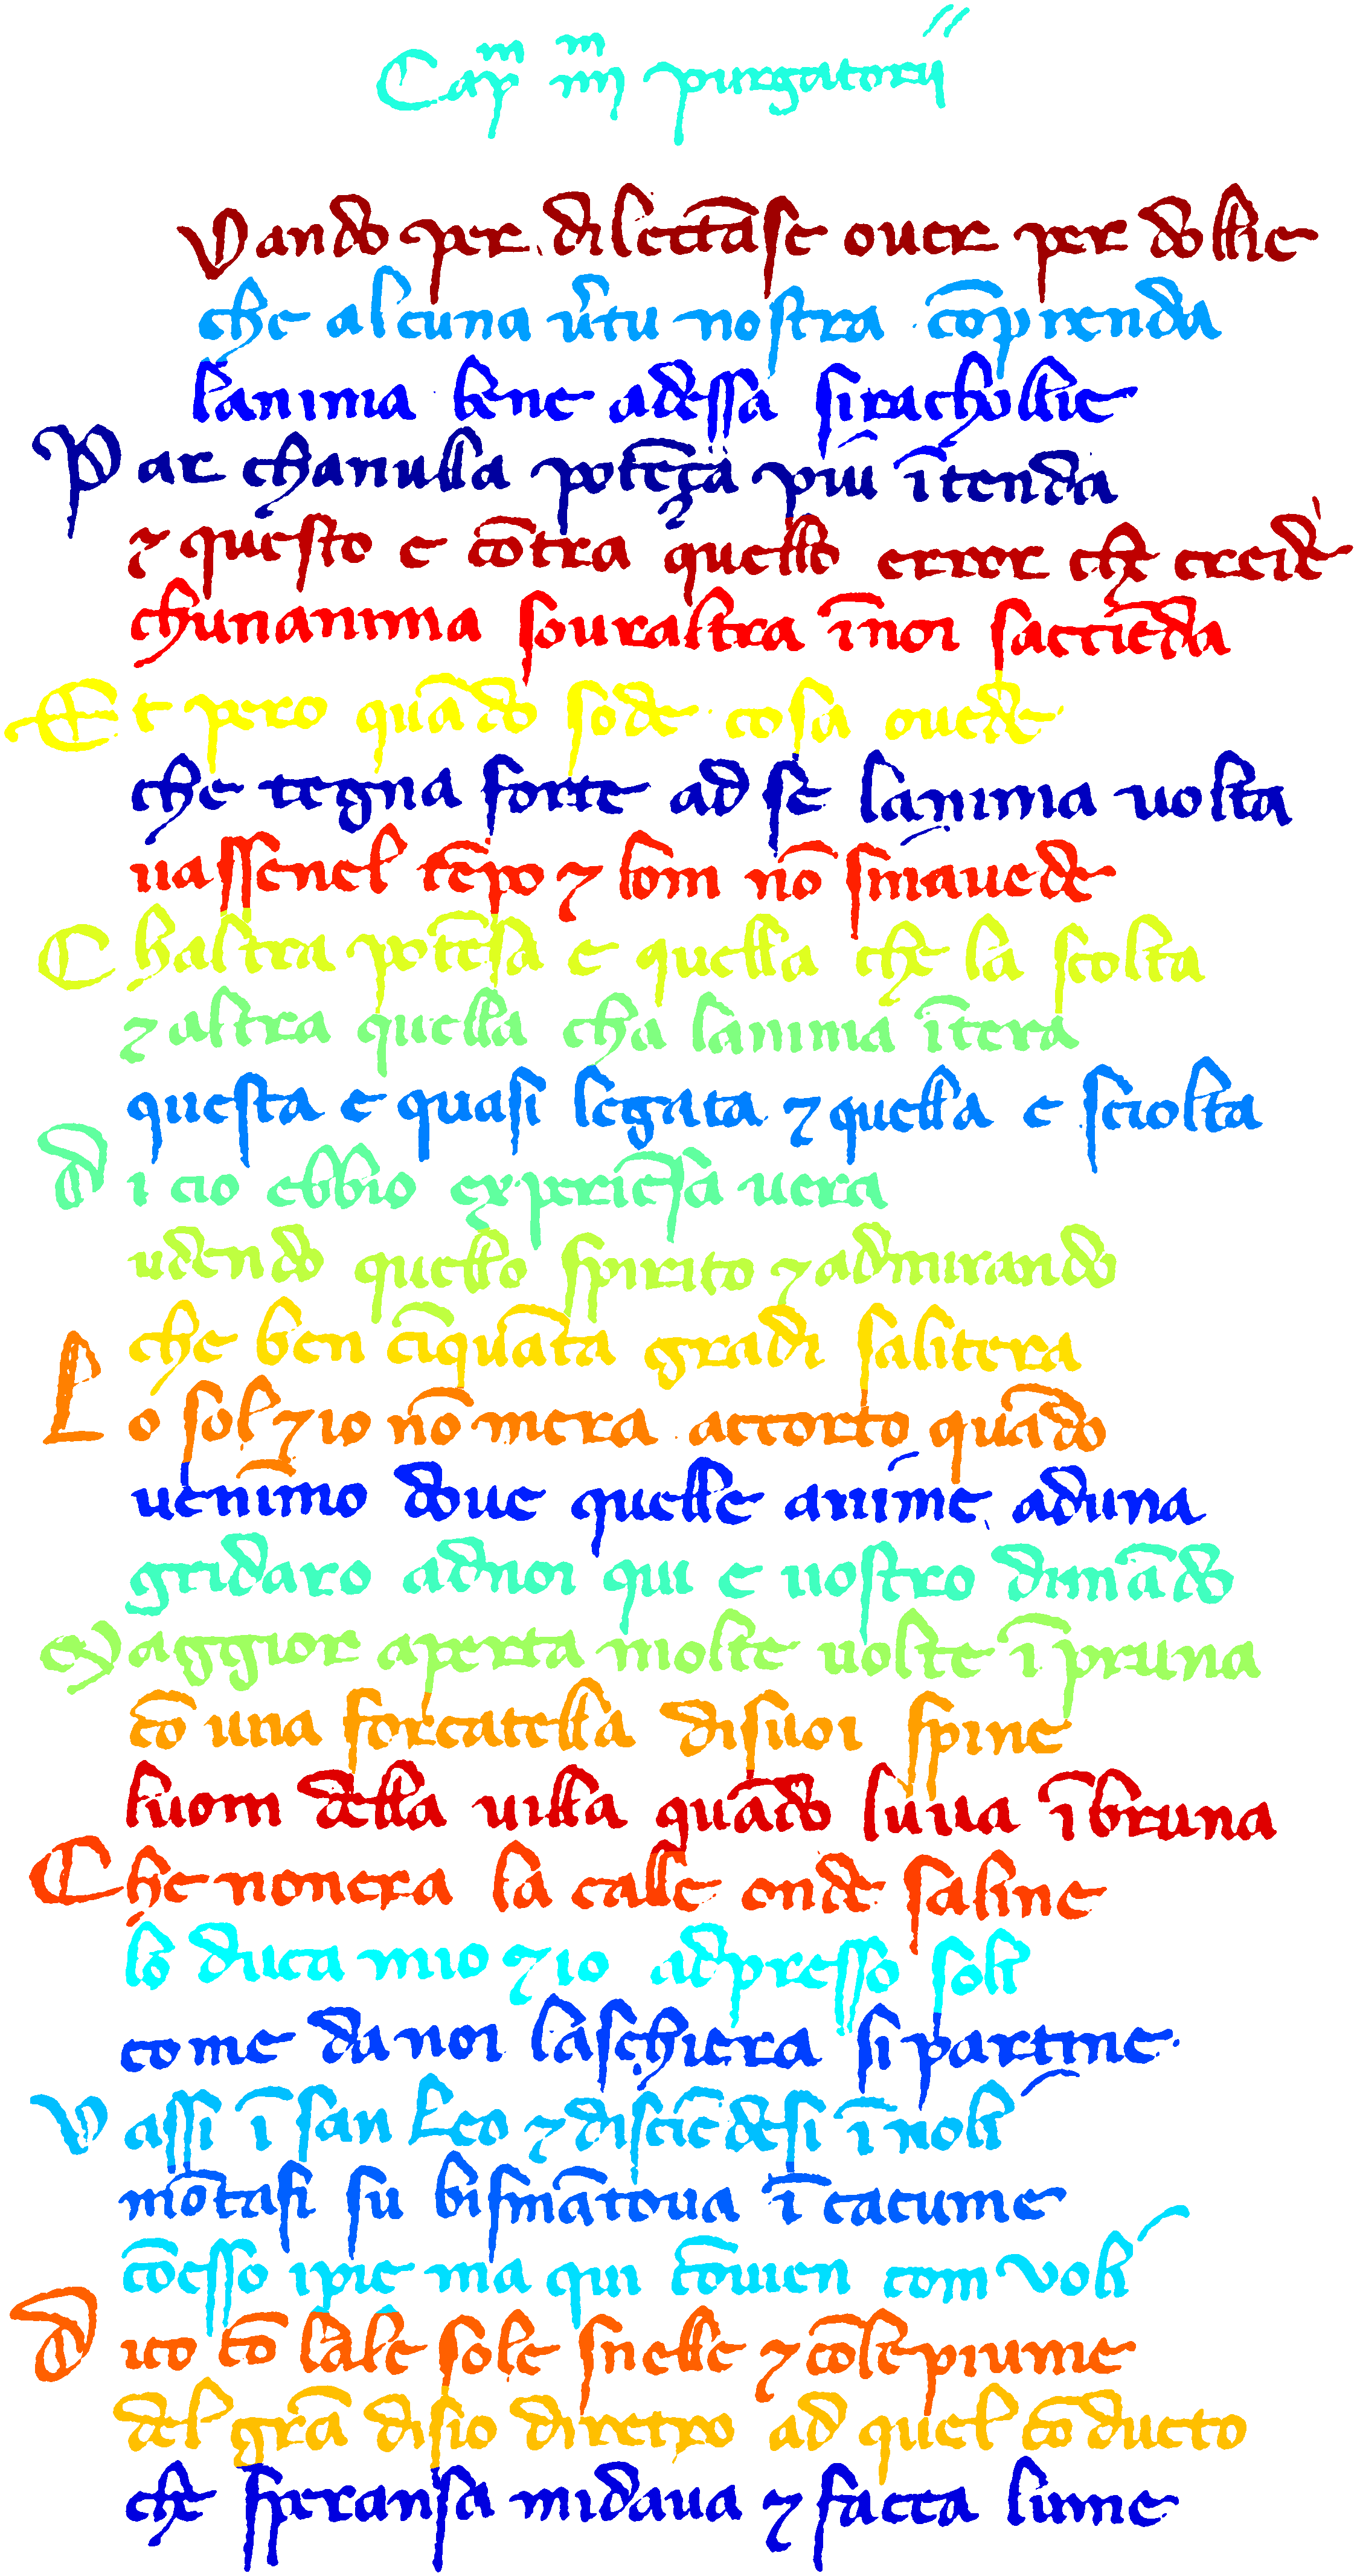 Cap̅m̅ iiij̅m̅ purgatorii
Uando per dilectāse ouer per dollie
che alcuna u̅rtu nostra cōprenda
lanima bene adessa sirachollie
Par chanulla potēça piu ītenda
⁊ questo e cōtra quello error che creide
chunanima souraltra īnoi saccīeda
Et pero quādo sode cosa ouede
che tegna forte ad se lanima uolta
uassenel tēpo ⁊ lom nō sinauede
Chaltra potēsa e quella che la scolta
⁊ altra quella cha lanima ītera
questa e quasi legata ⁊ quella e sciolta
di cio ebbio experiēsa uera
udendo quello spirito ⁊ admirando
che ben cīquāta gradi salitera
Lo sol ⁊ io nō mera accorto quādo
uenīmo doue quelle anime aduna
gridaro adnoi qui e uostro dimādo
Maggior aperta molte uolte īpruna
cō una forcatella disuoi spine
luom della uilla quādo luua ībruna
Che nonera la calle onde saline
lo duca mio ⁊ io adpresso soli
come danoi laschiera si partine
Uassi ī san Leo ⁊ disciēdesi ī noli
mōtasi su bismātoua ī cacume
cōesso ipie ma qui cōuien com uoli
dico cō lale sole snelle ⁊ cōle piume
del grā disio diretro ad quel cōducto
che speransa midaua ⁊ facea lume